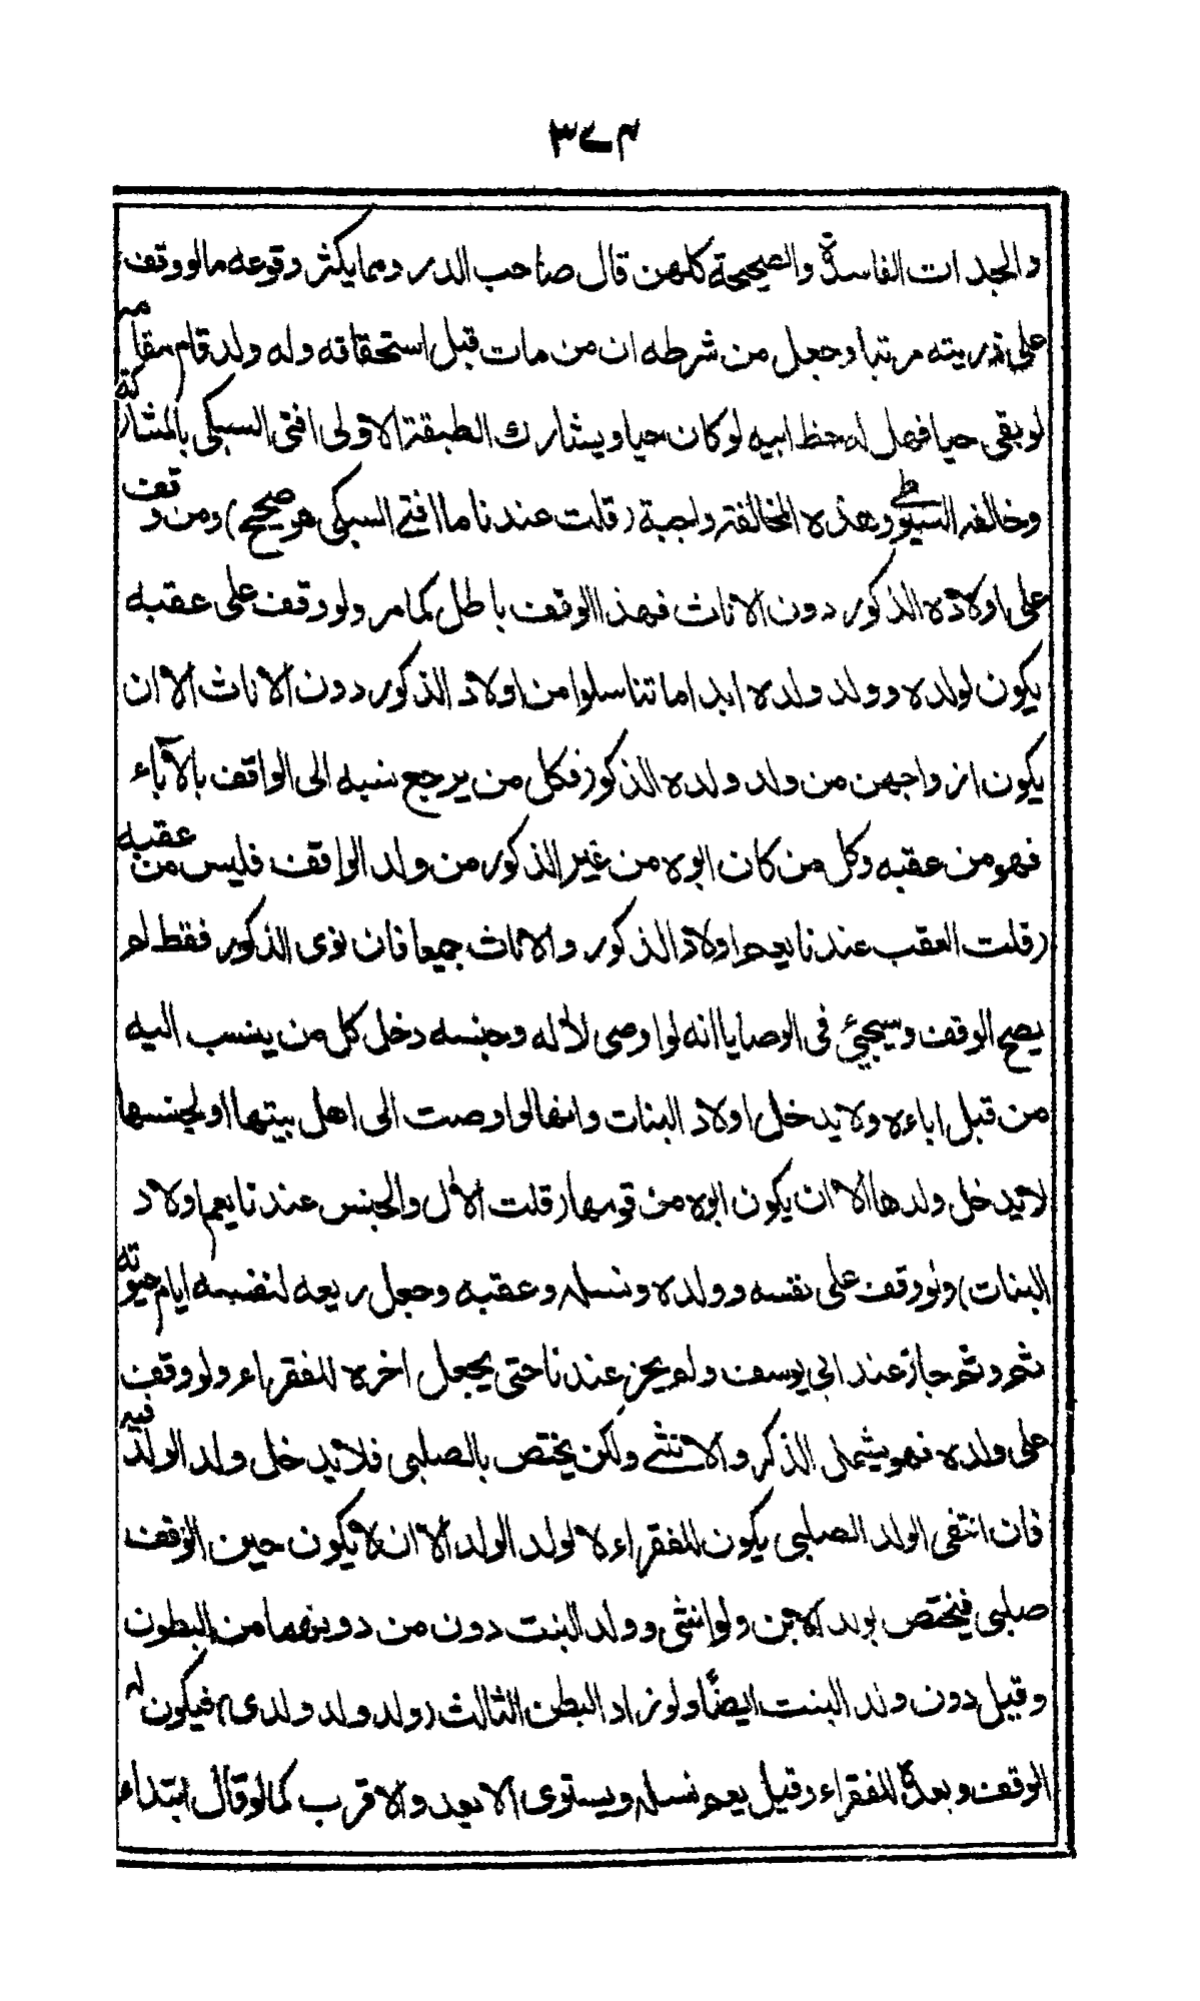 ٣٧٤
والجدات الفاسدة والصحيحة كلهن قال صاحب الدر ومما يكثر وقوعه ما لو وقف
على ذريته مرتبا وجعل من شرطه ان من مات قبل استحقاقه وله ولد قام مقامه
لو بقى حيا فهل له حظ ابيه لو كان حيا ويشارك الطبقة الاولى افتى السبكى بالمشاركة
وخالفه السيوطي وهذه المخالفة واجبة (قلت عندنا ما افتى السبكى هو صحيح) ومن وقف
على اولاده الذكور دون الاناث فهذا الوقف باطل كما مر ولو وقف على عقبه
يكون لولده وولد ولده ابدا ما تناسلوا من اولاد الذكور دون الاناث الا ان
يكون ازواجهن من ولد ولده الذكور فكل من يرجع نسبه الى الواقف بالآباء
فهو من عقبه وكل من كان ابوه من غير الذكور من ولد الواقف فليس من عقبه
(قلت العقب عندنا يعم اولاد الذكور والاناث جميعا فان نوى الذكور فقط لم
يصح الوقف وسيجيئ فى الوصايا انه لو اوصى لآله وجنسه دخل كل من ينسب اليه
من قبل اباءه ولا يدخل اولاد البنات وانها لو اوصت الى اهل بيتها او لجنسها
لا يدخل ولدها الا ان يكون ابوه من قومها (قلت الآل والجنس عندنا يعم اولاد
البنات) ولو وقف على نفسه وولده ونسله وعقبه وجعل ريعه لنفسه ايام حيوته
ثم وثم جاز عند ابى يوسف ولم يجز عندنا حتى يجعل اخره للفقراء ولو وقف
على ولده فهو يشمل الذكر والانثى ولكن يختص بالصلبى فلا يدخل ولد الولد فيه
فان انتفى الولد الصلبى يكون للفقراء لا لولد الولد الا ان لا يكون حين الوقف
صلبى فيختص بولد الابن ولو انثى وولد البنت دون من دونهما من البطون
وقيل دون ولد البنت ايضًا ولو زاد البطن الثالث (ولد ولد ولدى) فيكون له
الوقف وبعده للفقراء وقيل يعم نسله ويستوى الابعد والاقرب كما لو قال ابتداء